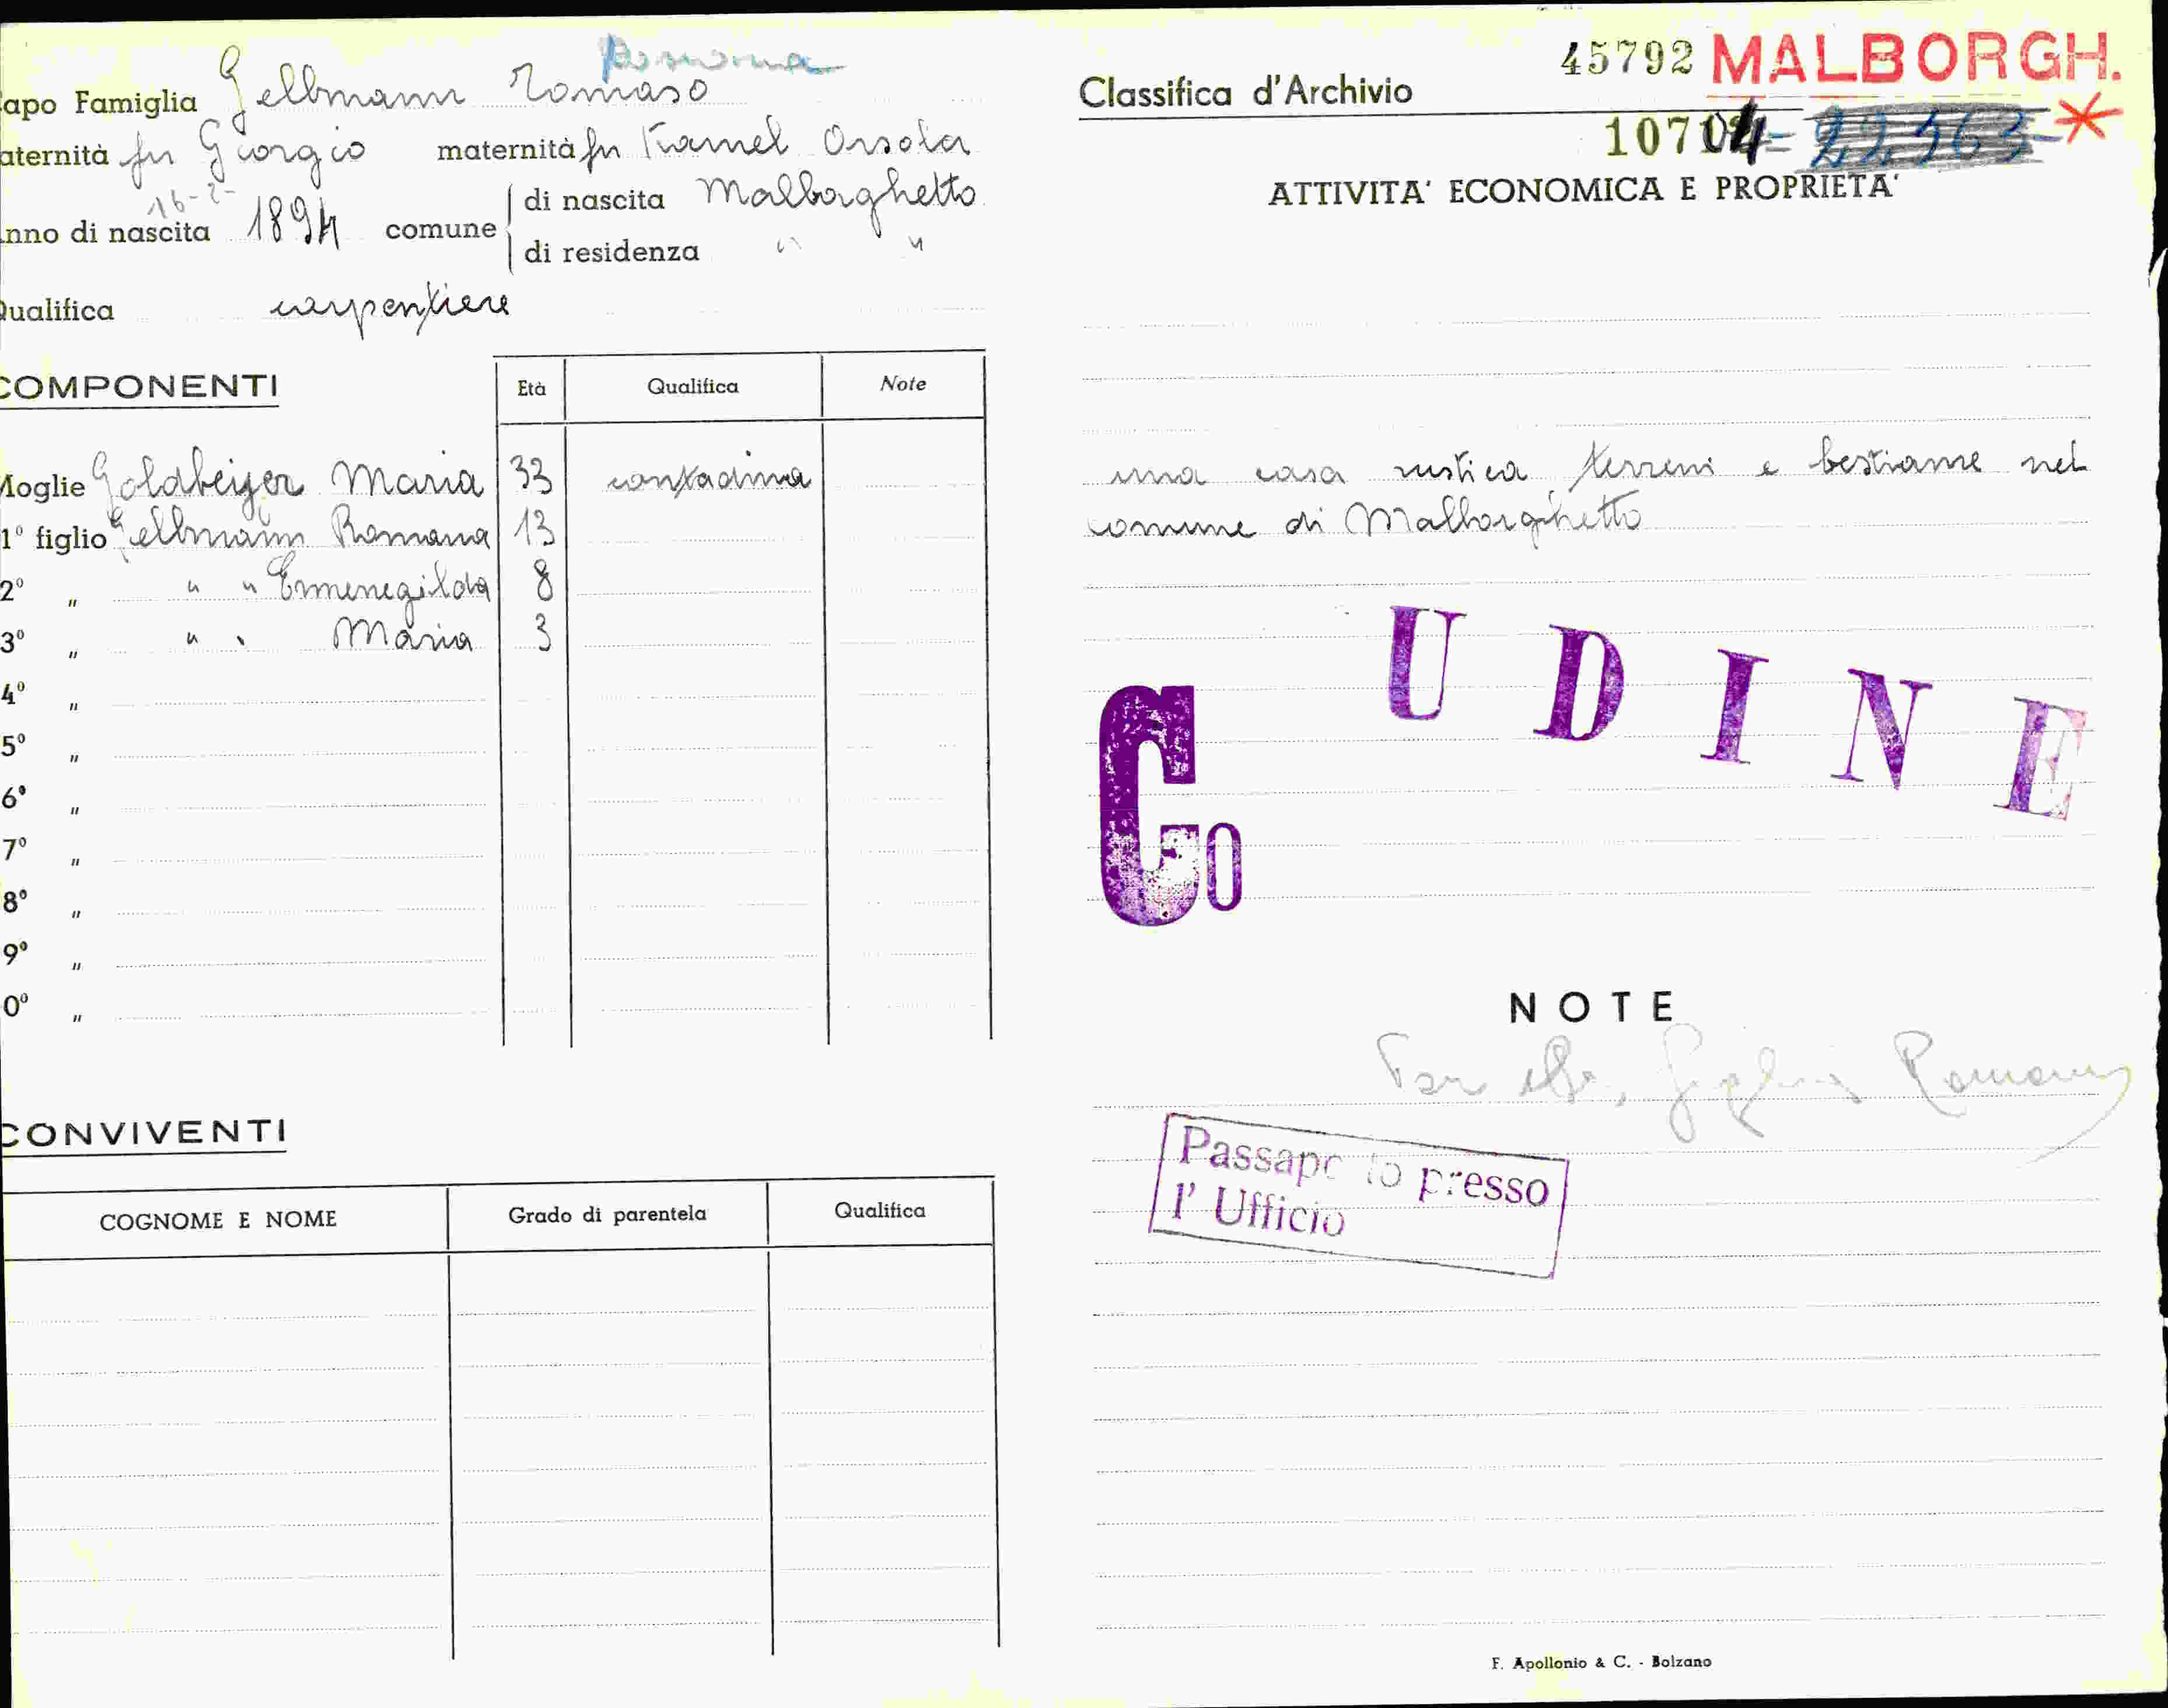 Romana
apo Famiglia Gelbmann Tomaso
aternità fu Giorgio maternità fu Kramel Orsola
16-2-
nno di nascita 1894 comune di nascita Malborghetto
di residenza " "
Qualifica carpentiere
COMPONENTI Età Qualifica Note
Moglie Goldbeiger Maria 33 contadina
1º figlio Gelbmann Romana 13
2º " " " Ermenegilda 8
3º " " " Maria 3
4º "
5º "
6º "
7º "
8º "
9º "
0º "
CONVIVENTI
COGNOME E NOME Grado di parentela Qualifica
45792 MALBORGH.
Classifica d'Archivio
10704 = 22363- *
ATTIVITA' ECONOMICA E PROPRIETA'
una casa rustica, terreni e bestiame nel
comune di Malborghetto
UDINE
Go
NOTE
figlia Romana
Passapo to presso
l' Ufficio
F. Apollonio & C. - Bolzano